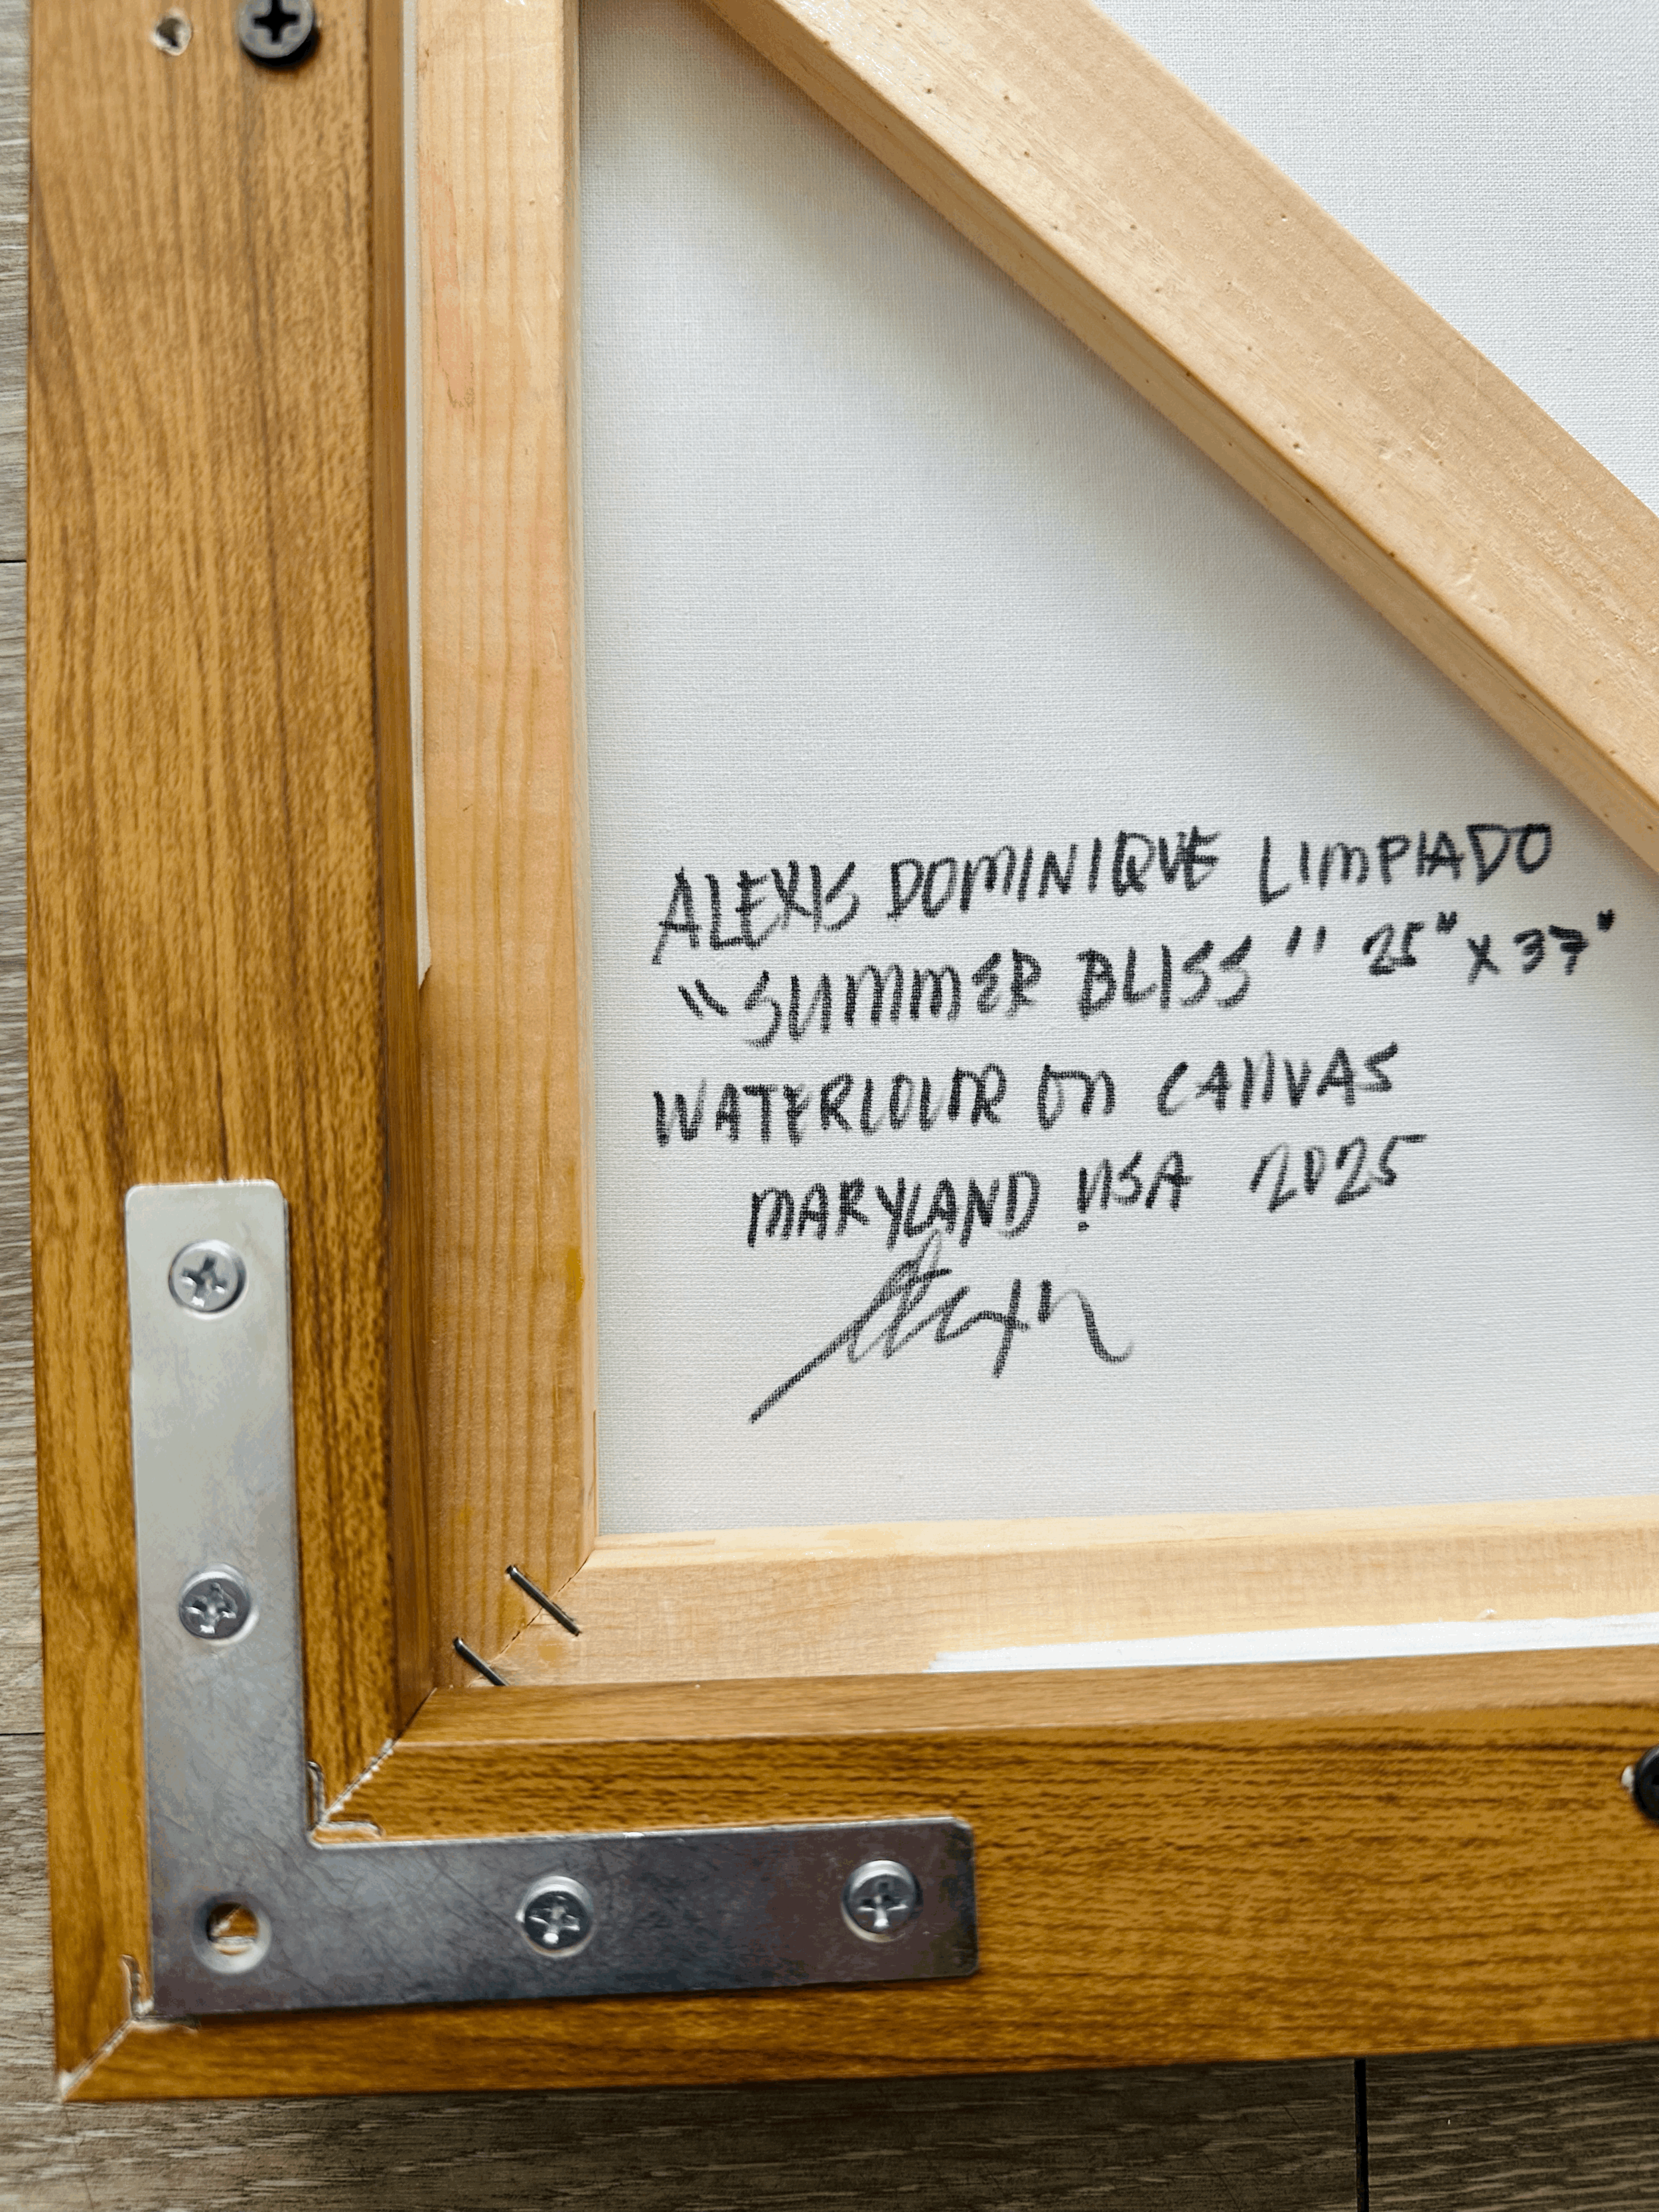 ALEXIS DOMINIQUE LIMPIADO
"SUMMER BLISS" 25" X 37"
WATERCOLOUR ON CANVAS
MARYLAND USA 2025